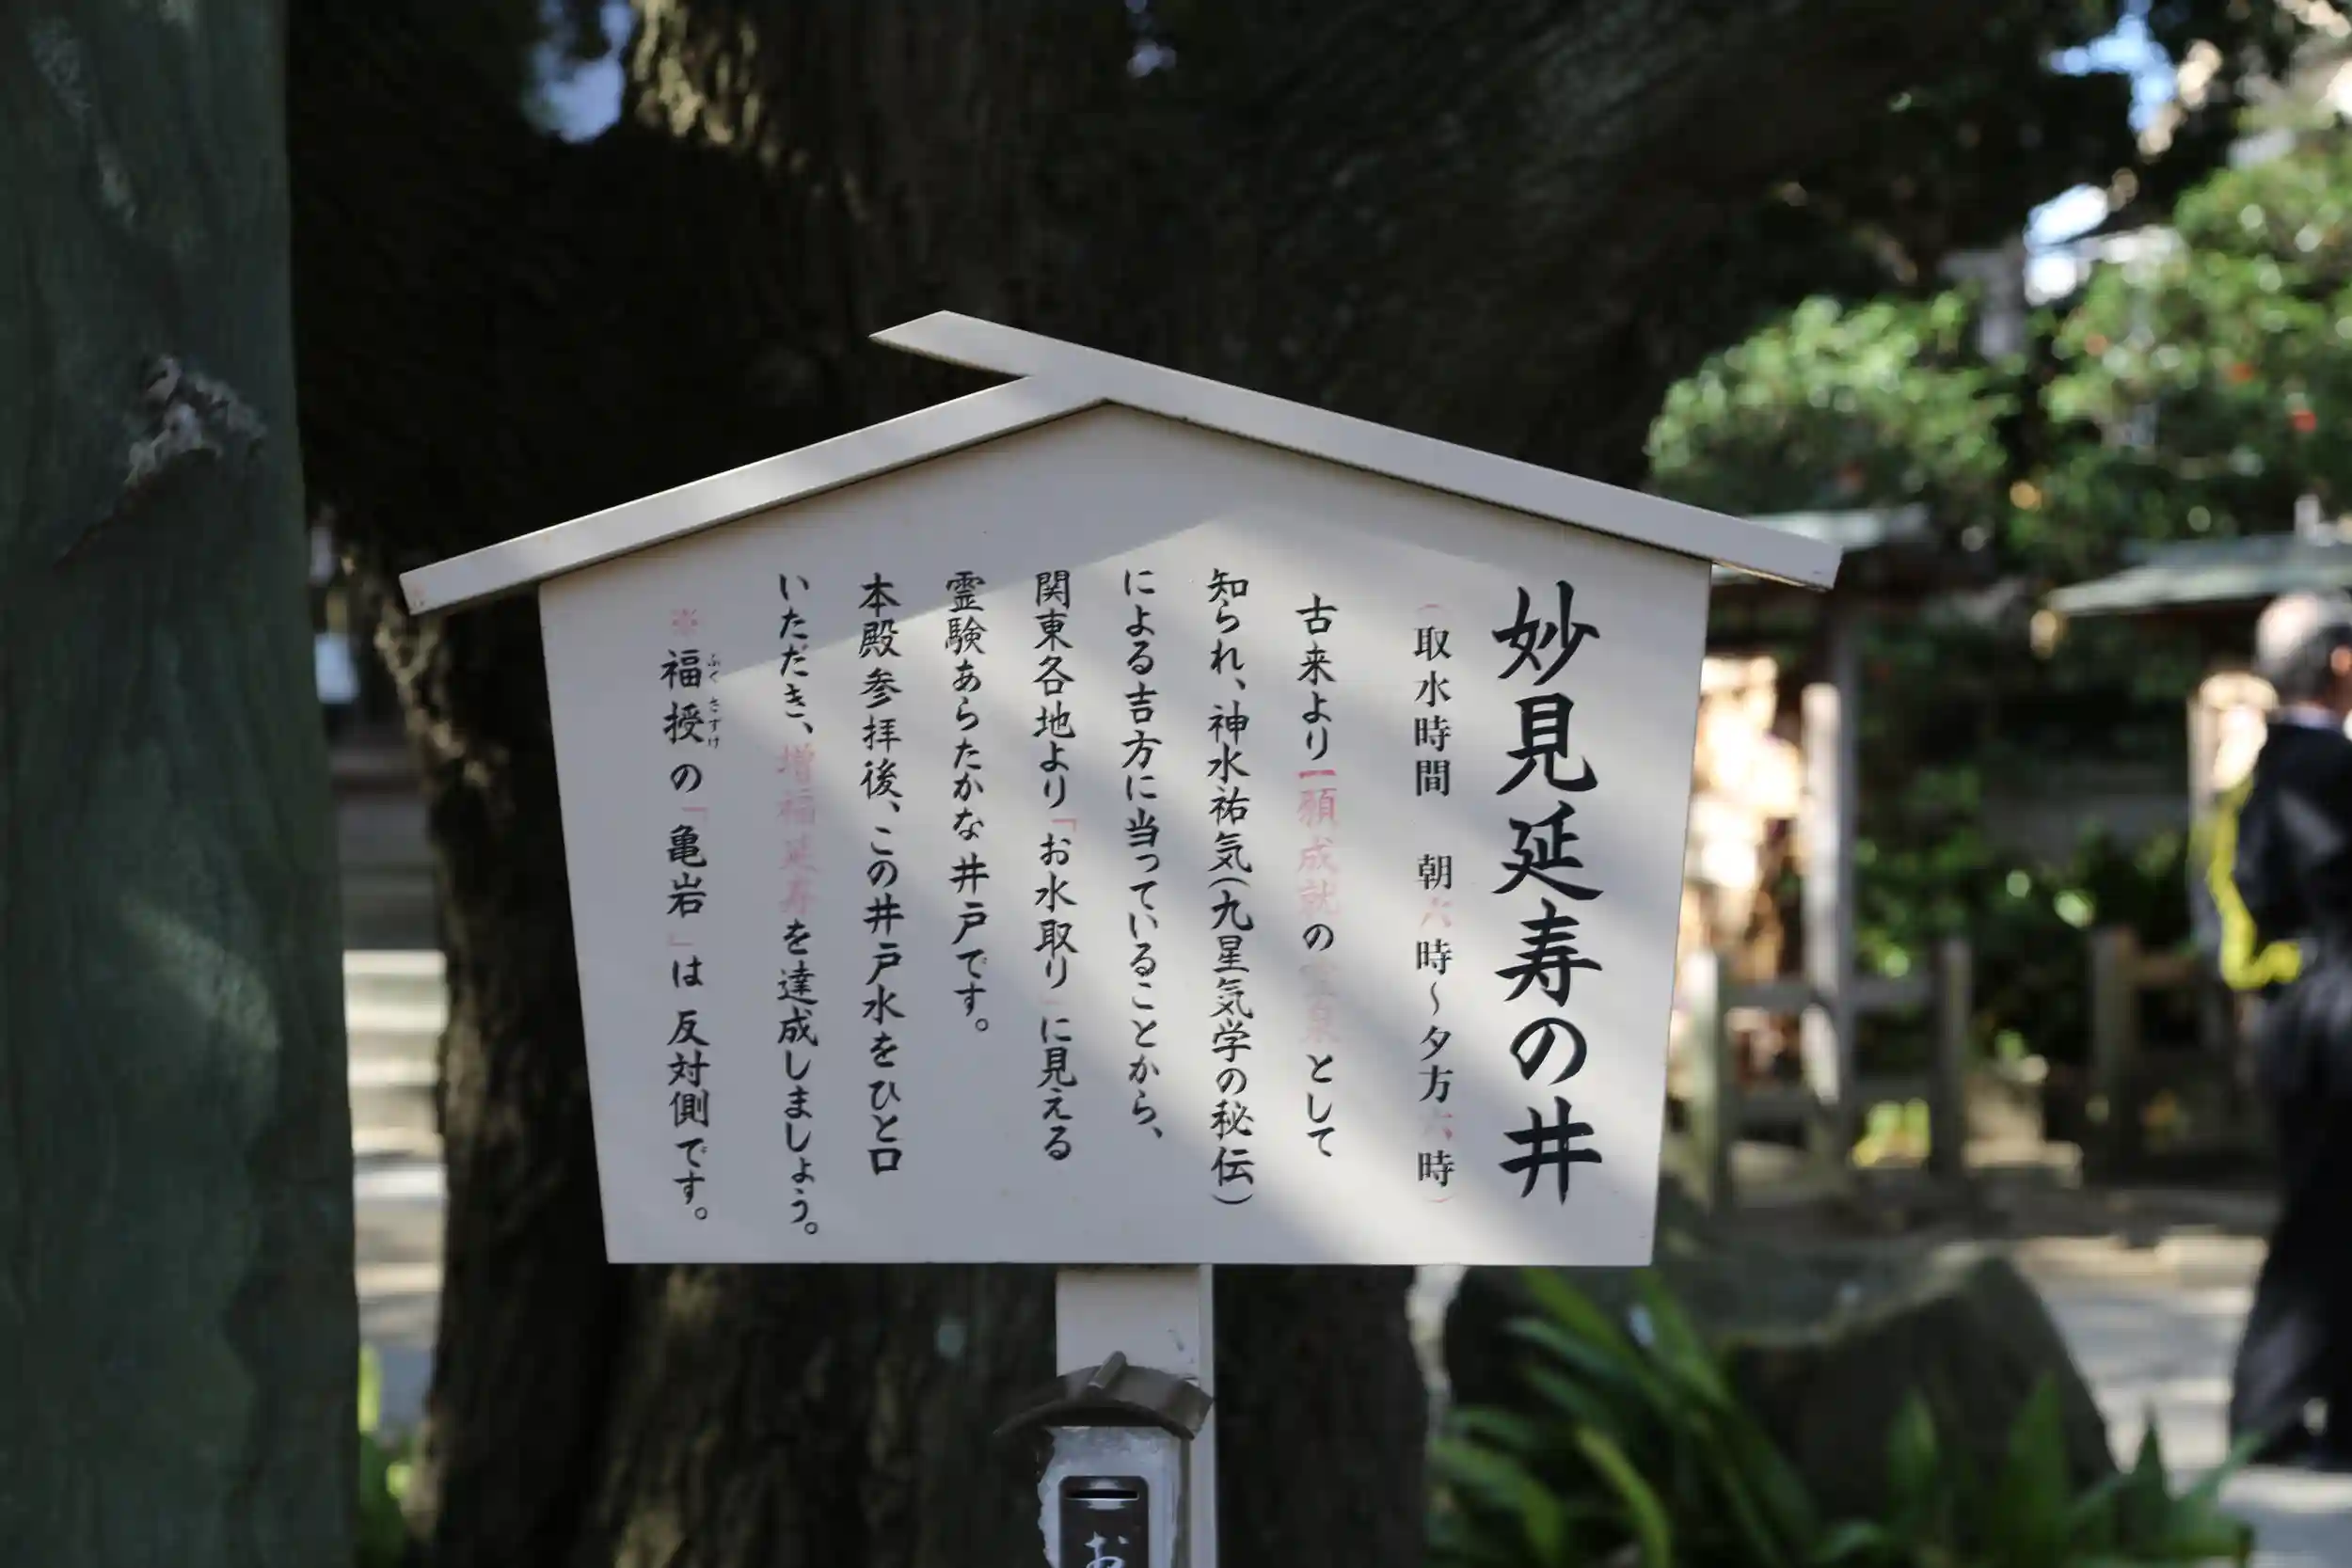 妙見延寿の井
(取水時間　朝六時～夕方六時)
古来より「一願成就の霊泉として
知られ、神水祐気(九星気学の秘伝)
による吉方に当っていることから、
関東各地より「お水取り」に見える
霊験あらたかな井戸です。
本殿参拝後、この井戸水をひと口
いただき、増福延寿を達成しましょう。
※福授の「亀岩」は反対側です。
ふくさずけ
お